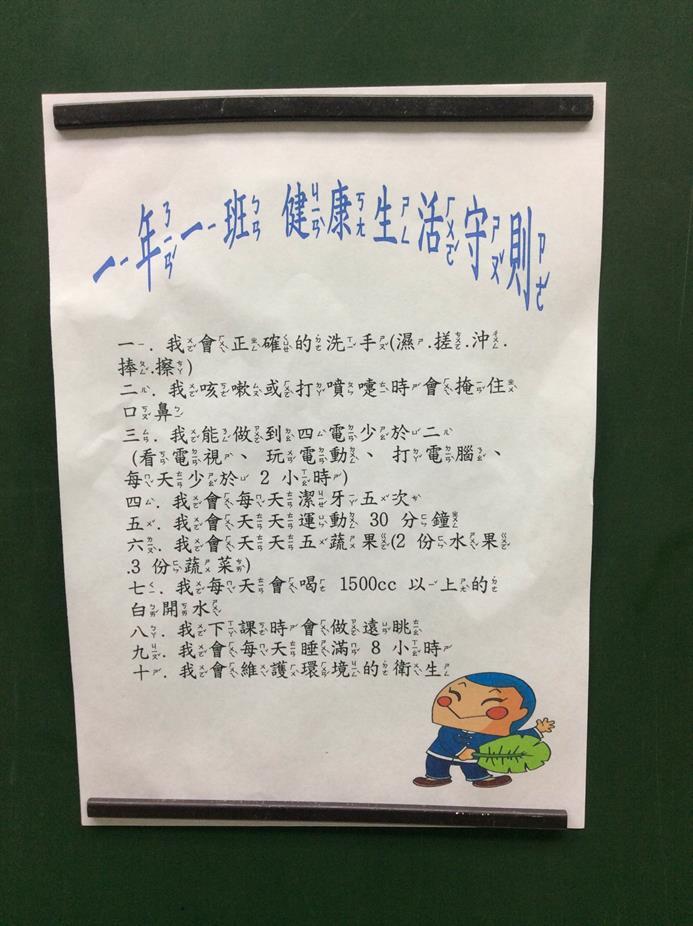 一年一班 健康生活守則
一．我會正確的洗手(濕．搓．沖．
捧．擦)
二．我咳嗽或打噴嚏時會掩住
口鼻
三．我能做到四電少於二
(看電視、 玩電動、 打電腦、
每天少於 2 小時)
四．我會每天潔牙五次
五．我會天天運動 30 分鐘
六．我會天天五蔬果(2 份水果
.3 份蔬菜)
七．我每天會喝 1500cc 以上的
白開水
八．我下課時會做遠眺
九．我會每天睡滿 8 小時
十．我會維護環境的衛生